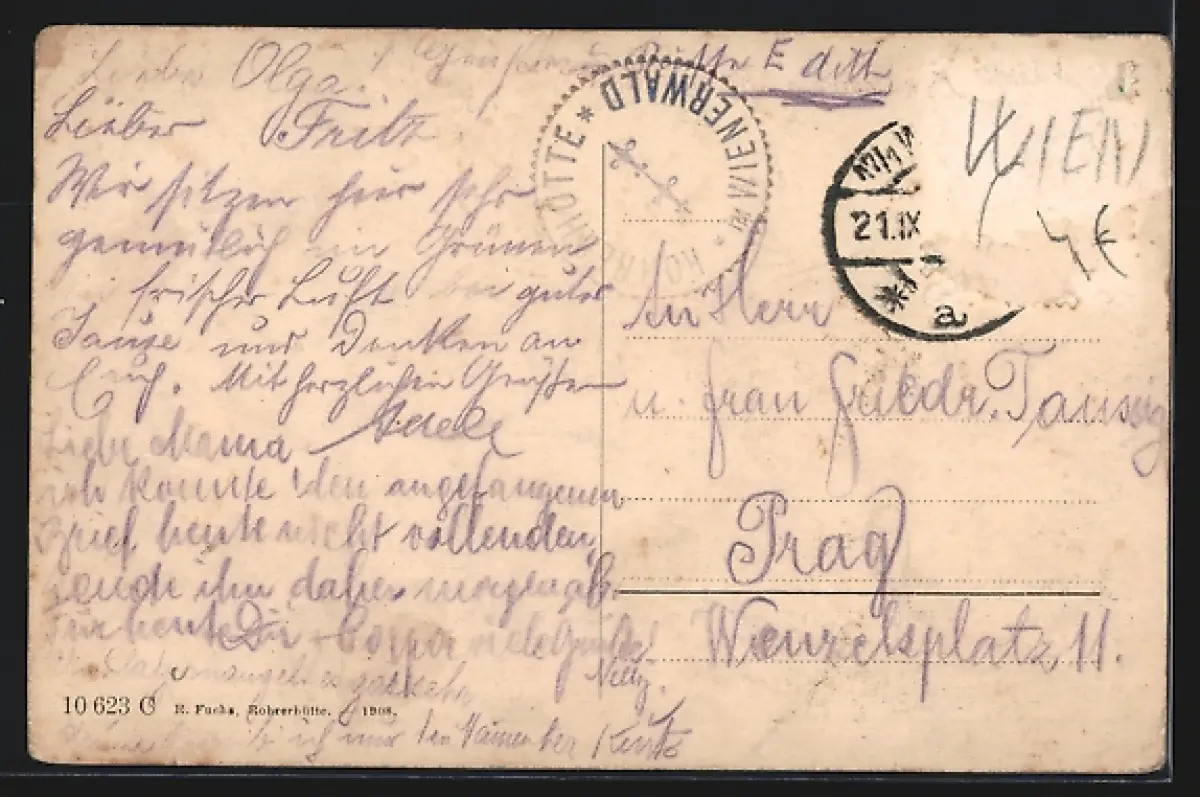 Liebe Olga.
Bitte Edith
Lieber Fritz
Wir sitzen hier sehr
gemütlich im Grünen
frischer Luft bei guter
Jause und Denken an
Euch. Mit herzlichen Grüßen
Adele
Liebe Mama
ich konnte den angefangenen
Brief heute nicht vollenden,
sende ihn daher morgen ab.
Für heute Dir Papa viele Grüße!
Nelly.
ich nur den Namen der Kinder
10 623 G R. Fuchs, Rohrerhütte. 1908.
WIENERWALD
WIEN
21.IX
a
WIEN
4€
An Herr
u. Frau Friedr. Taussig
Prag
Wenzelsplatz 11.